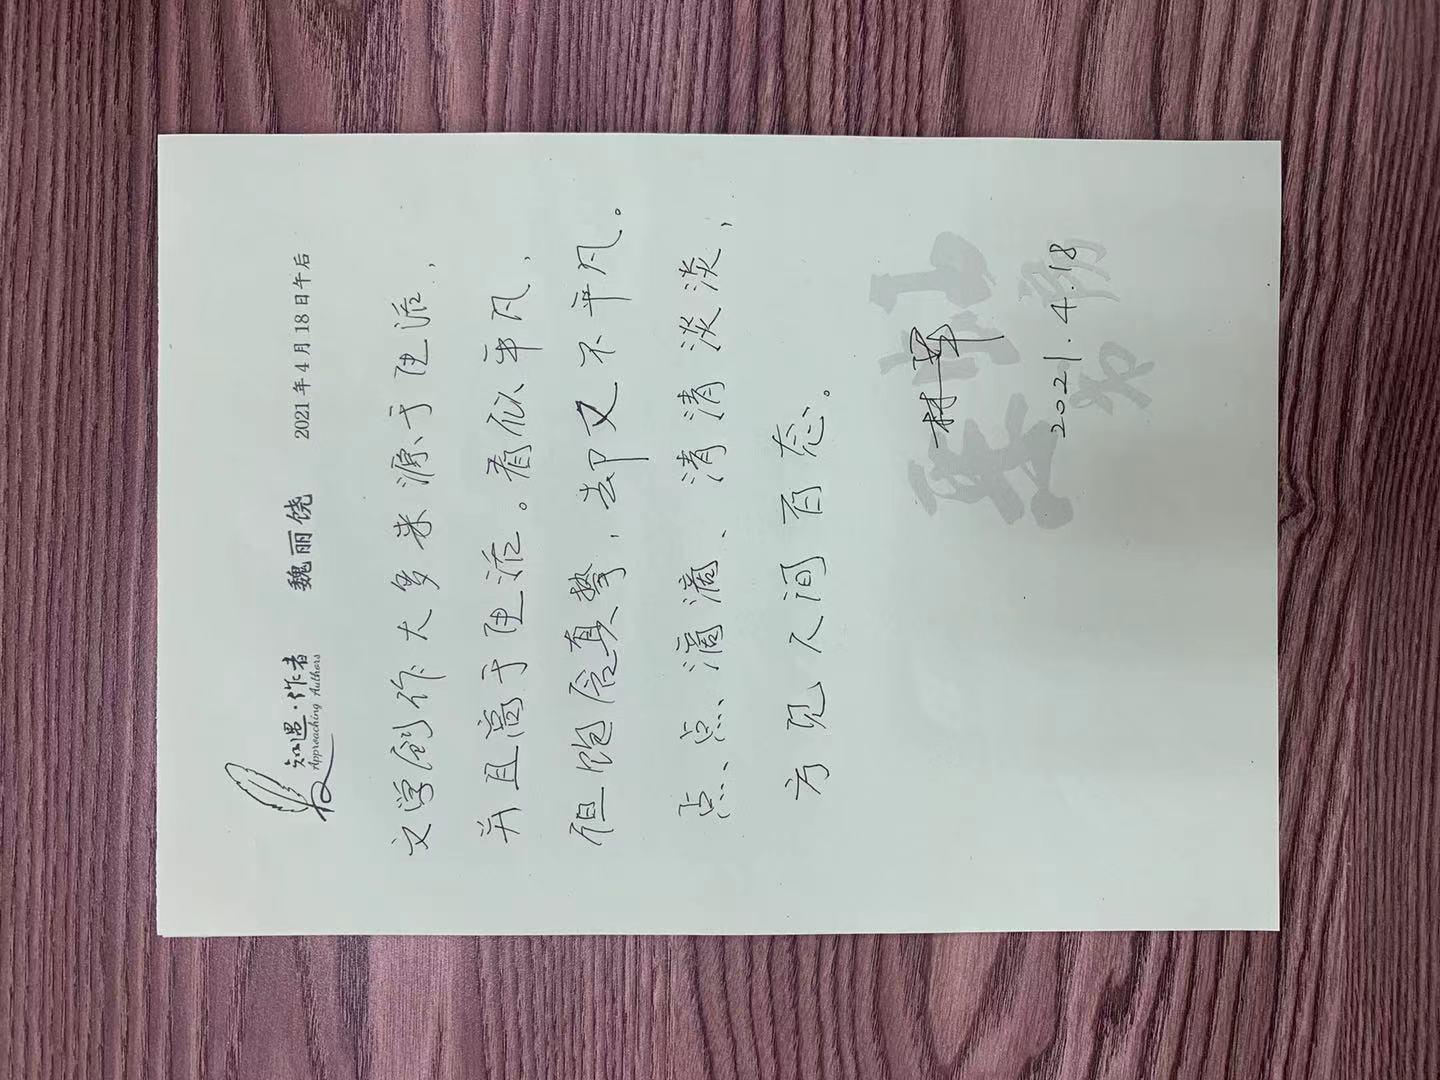 知遇·作者 魏丽饶 2021年4月18日午后
Approaching Authors
文学创作大多来源于生活，
并且高于生活。看似平凡，
但饱含真挚，却又不平凡。
点点滴滴、清清淡淡，
方见人间百态。
2021.4.18